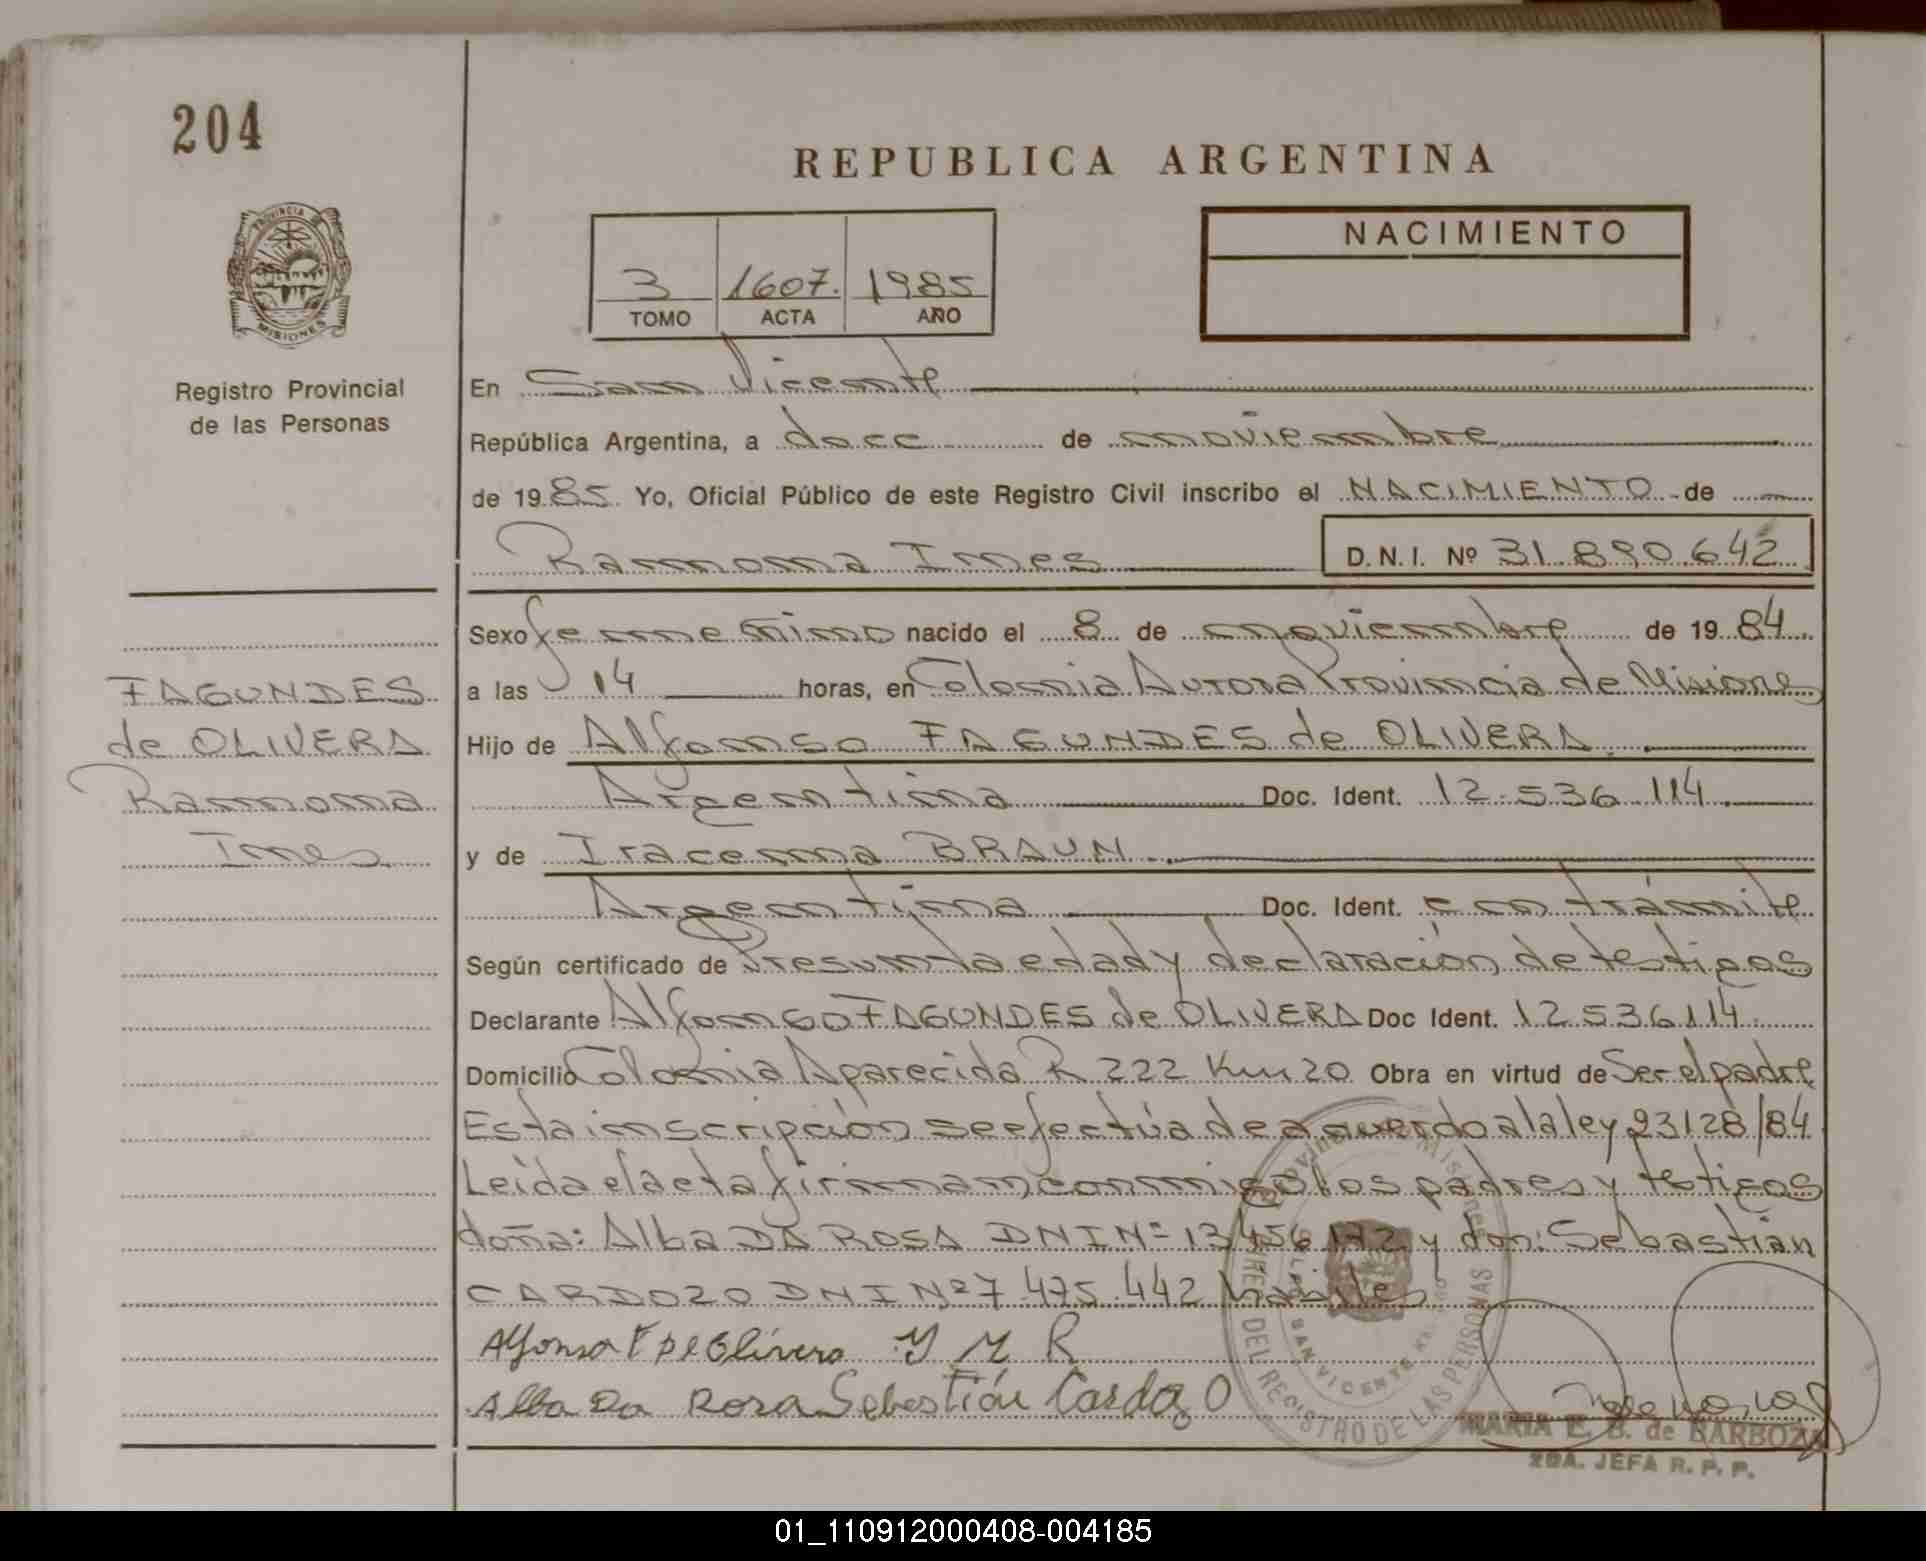 204
REPUBLICA ARGENTINA
PROVINCIA DE
MISIONES
Registro Provincial
de las Personas
3 1607. 1985
TOMO ACTA AÑO
NACIMIENTO
En San Vicente
República Argentina, a doce de noviembre
de 1985 Yo, Oficial Público de este Registro Civil inscribo el NACIMIENTO de
Ramona Ines D.N.I. Nº 31.890.642
Sexo femenino nacido el 8 de noviembre de 1984
a las 14 horas, en Colonia Aurora Provincia de Misiones
Hijo de Alfonso FAGUNDES de OLIVERA
Argentina Doc. Ident. 12.536.114
y de Iracema BRAUN
Argentina Doc. Ident. en trámite
Según certificado de Presunta edad y declaración de testigos
Declarante Alfonso FAGUNDES de OLIVERA Doc Ident. 12.536.114
Domicilio Colonia Aparecida R 222 Km 20 Obra en virtud de Ser el padre
Esta inscripción se efectúa de acuerdo a la ley 23128/84
Leída el acta firman conmigo los padres y testigos
doña: Alba DA ROSA DNI Nº 13.456.172 y don: Sebastián
CARDOZO DNI Nº 7.475.442 hábiles
FAGUNDES
de OLIVERA
Ramona
Ines
Alfonso F de Olivera Y M R
Alba Da Rosa Sebestián Cardozo
DEL REGISTRO DE LAS PERSONAS
SAN VICENTE
MARIA E. B. de BARBOZA
2DA. JEFA R. P. P.
01_110912000408-004185